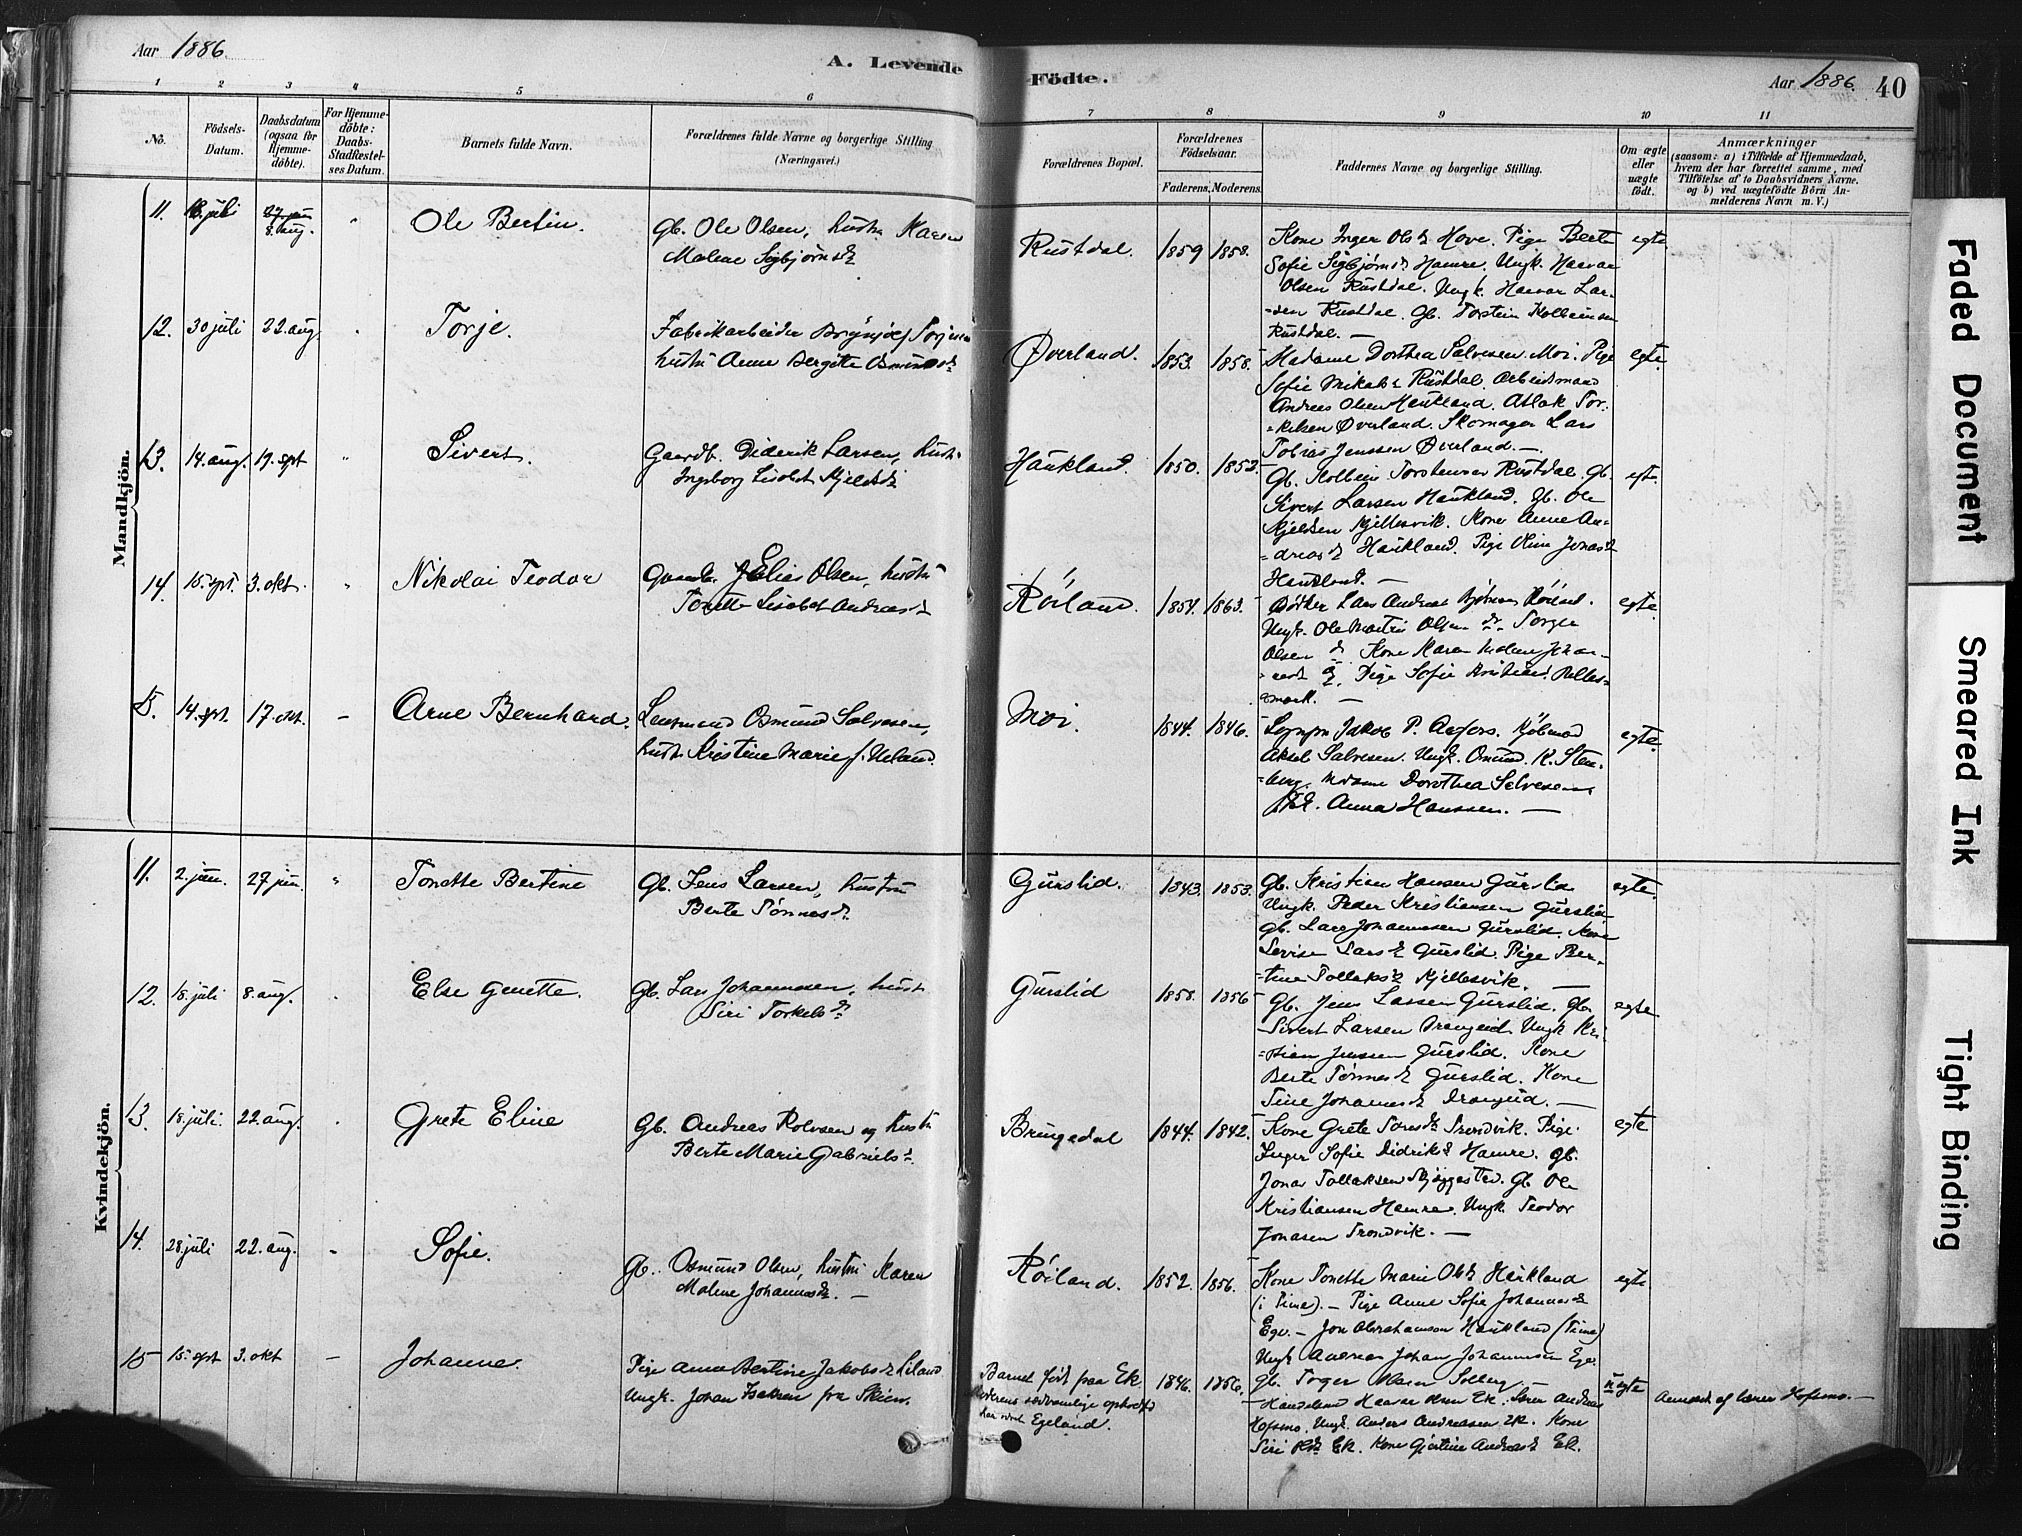 Aar 1886.
A. Levende
Födte.
Aar 1886.
40
1 2 3 4 5 6 7 8 9 10 11
No.
Födsels-
Datum.
Daabsdatum
(ogsaa for
Hjemme-
döbte).
For Hjemme-
döbte:
Daabs-
Stadfæstel-
ses Datum.
Barnets fulde Navn.
Forældrenes fulde Navne og borgerlige Stilling
(Næringsvei.)
Forældrenes Bopæl.
Forældrenes
Födselsaar.
Faderens. Moderens.
Faddernes Navne og borgerlige Stilling.
Om ægte
eller
uægte
födt.
Anmærkninger
(saasom: a) i Tilfælde af Hjemmedaab,
hvem der har forrettet samme, med
Tilföielse af to Daabsvidners Navne.
og b) ved uægtefödte Börn An-
melderens Navn m. V.)
Mandkjön.
11. juli 8. aug. Ole Bertin.
Gb. Ole Olsen, hustru Karen
Malene Sigbjørnsd.
Rustdal. 1859 1858.
Kone Inger Olsd. Hove. Pige Berte
Sofie Sigbjørnsd. Hamre. Ungk. Haavar
Olsen Rustdal. Ungk. Haavar Lar-
sen Rustdal. Gb. Torstein Kolbeinsen
Rustdal. —
egte
12. 30 juli 22. aug. Torje.
Fabrikarbeider Brynjolf Torjesen
hustru Anne Bergitte Osmundsd.
Øverland. 1853. 1858.
Madame Dorthea Salvesen. Moi. Pige
Sofie Mikalsd. Rustdal. Arbeidsmand
Andreas Olsen Haukland. Atlak Tor-
kelsen Øverland. Skomager Lars
Tobias Jenssen Øverland. —
egte.
13. 14. aug. 19. sept Sivert.
Gaardb. Diderik Larsen, hustr.
Ingeborg Lisabet Kjelsd.
Haukland. 1850. 1852.
Gb. Kolbein Torstensen Rustdal. Gb.
Sivert Larsen Haukland. Gb. Ole
Kjelsen Kjellesvik. Kone Anne An-
dreasd. Haukland. Pige Oline Jonasd.
Haukland. —
egte.
14. 15. sept. 3. okt. Nikolai Teodor
Gaardb. Elias Olsen, hustru
Tonette Lisabet Andreasd.
Røiland. 1854. 1863.
Bødker Lars Andreas Røiland.
Ungk. Ole Martin Olsen do. Torger
Olsen do. Kone Karen Malene Johan-
nesd. do. Pige Sofie
—
egte.
15. 14. sept. 17. okt. — Arne Bernhard.
Lensmand Osmund Salvesen,
hustr. Kristine Marie f. Ueland.
Moi. 1844. 1846.
Jakob P. Kjøbmd
Aksel Salvesen. Ungk. Osmund. K. Sten-
berg. Madame Dorothea Salvesen.
Anna Hanssen. —
egte.
Kvindekjön.
11. 2. jun. 27. jun. Tonette Bertine
Gb. Jens Larsen, hustru
Berte Tønnesd.
Gurslid. 1843. 1853.
Gb. Kristian Hansen Gurslid
Ungk. Peder Kristiansen Gurslid
Gb. Lars Johannessen Gurslid. Kone
Sevine Larsd. Gurslid. Pige Ber-
tine Tollaksd. Kjellesvik. —
egte.
12. 18. juli 8. aug. Else Gurette.
Gb. Lars Johannessen, hustr.
Siri Torkelsd.
Gurslid 1858. 1856
Gb. Jens Larsen Gurslid. Gb.
Sivert Larsen Drangeid. Ungk. Kri-
stian Jenssen Gurslid. Kone
Berte Tønnesd. Gurslid. Kone
Tine Johannesd. Drangeid. —
egte.
13. 18. juli. 22. aug. Grete Eline
Gb. Andreas Rolvsen og hustru
Berte Marie Gabrielsd.
Bringedal 1844. 1842.
Kone Grete Tonesd. Trondvik. Pige
Inger Sofie Didriksd. Hamre. Gb.
Jonas Tollaksen Skjæggestad. Gb. Ole
Kristiansen Hamre. Ungk. Teodor
Jonasen Trondvik. —
egte
14. 28. juli 22. aug. — Sofie.
Gb. Osmund Olsen, hustru Karen
Malene Johannesd. —
Røiland. 1852. 1856.
Kone Tonette Marie Olsd. Haukland
(i Time). — Pige Anne Sofie Johannesd.
Ege. — Jon Abrahamson Haukland (Time)
Ungk. Andreas Johan Johannesen Ege.
Gb. Torger Olsen Solberg. —
egte
15 15. sept 3. okt — Johanne.
Pige Anna Bertine Jakobsd. Eiland.
Ungk. Johan Isaksen fra Skien.
Barnet født paa Ek
Moderens sedvanlige ophold
har været Egeland.
1846. 1856.
Haavar Olsen Ek. Lærer Andreas
Hofsmo. Ungk. Anders Andreassen Ek. Kone
Siri Olsd. Ek. Kone Gjertine Andreasd. Ek.
uegte
Anmeldt af lærer Hofsmo. —
Faded Document
Smeared Ink
Tight Binding